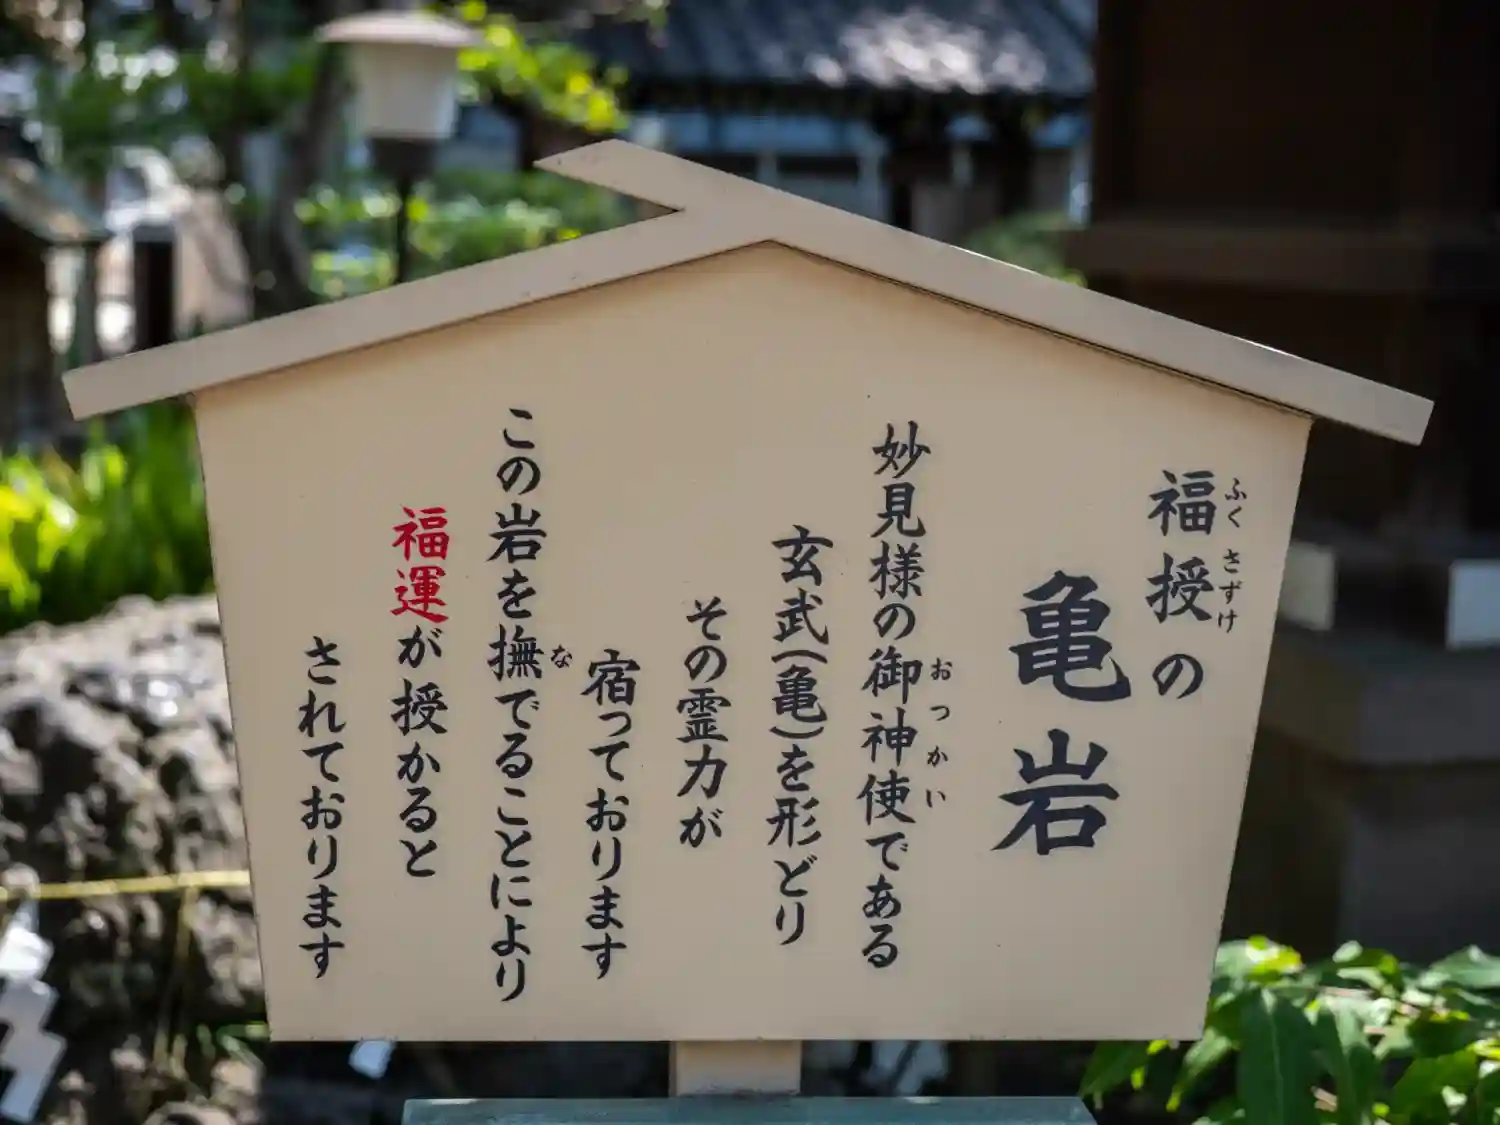 福授の
ふくさずけ
亀岩
妙見様の御神使である
おつかい
玄武(亀)を形どり
その霊力が
宿っております
この岩を撫でることにより
な
福運が授かると
されております